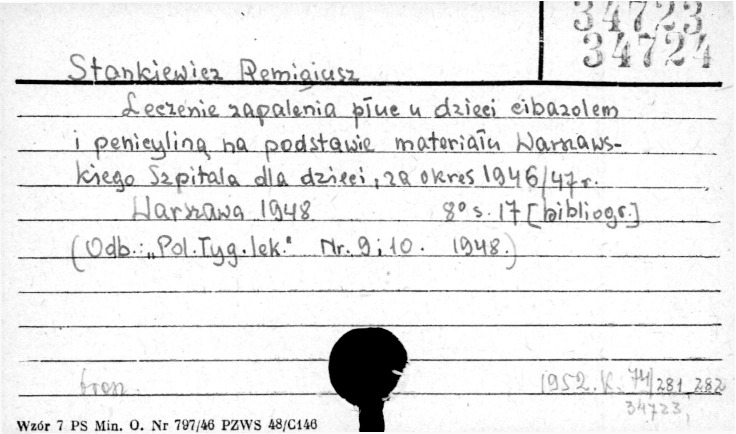 34723
34724
Stankiewicz Remigiusz
Leczenie zapalenia płuc u dzieci cibazolem
i penicyliną na podstawie materiału Warszaws-
kiego Szpitala dla dzieci, za okres 1946/47 r.
Warszawa 1948 8° s. 17 [bibliogr.]
(Odb.: „Pol. Tyg. lek." Nr. 9 i 10. 1948.)
brosz. 1952. K. 74/281, 282
34723,
Wzór 7 PS Min. O. Nr 797/46 PZWS 48/C146